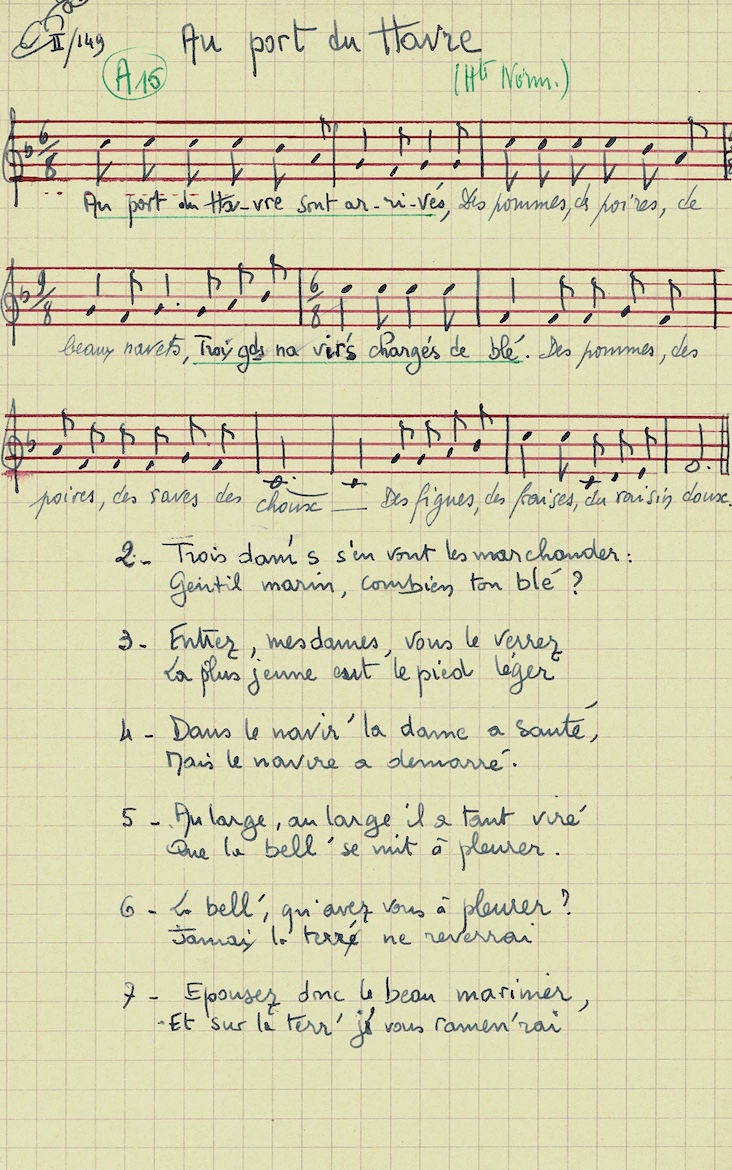 II/149
Au port du Havre
A15
(Hte Norm.)
6/8
Au port du Ha-vre sont ar-ri-vés, Des pommes, ds poires, de
9/8 6/8
beaux navets, Trois gds na vir's chargés de blé. Des pommes, des
poires, des raves des choux — Des figues, des fraises, du raisin doux.
2- Trois dam's s'en vont les marchander :
Gentil marin, combien ton blé ?
3- Entrez, mesdames, vous le verrez
La plus jeune eut le pied léger
4- Dans le navir' la dame a sauté,
Mais le navire a demarré.
5- Au large, au large il a tant viré
Que la bell' se mit à pleurer.
6- La bell', qu'avez vous à pleurer ?
Jamais la terre ne reverrai
7- Epousez donc le beau marinier,
Et sur la terr' je vous ramen'rai